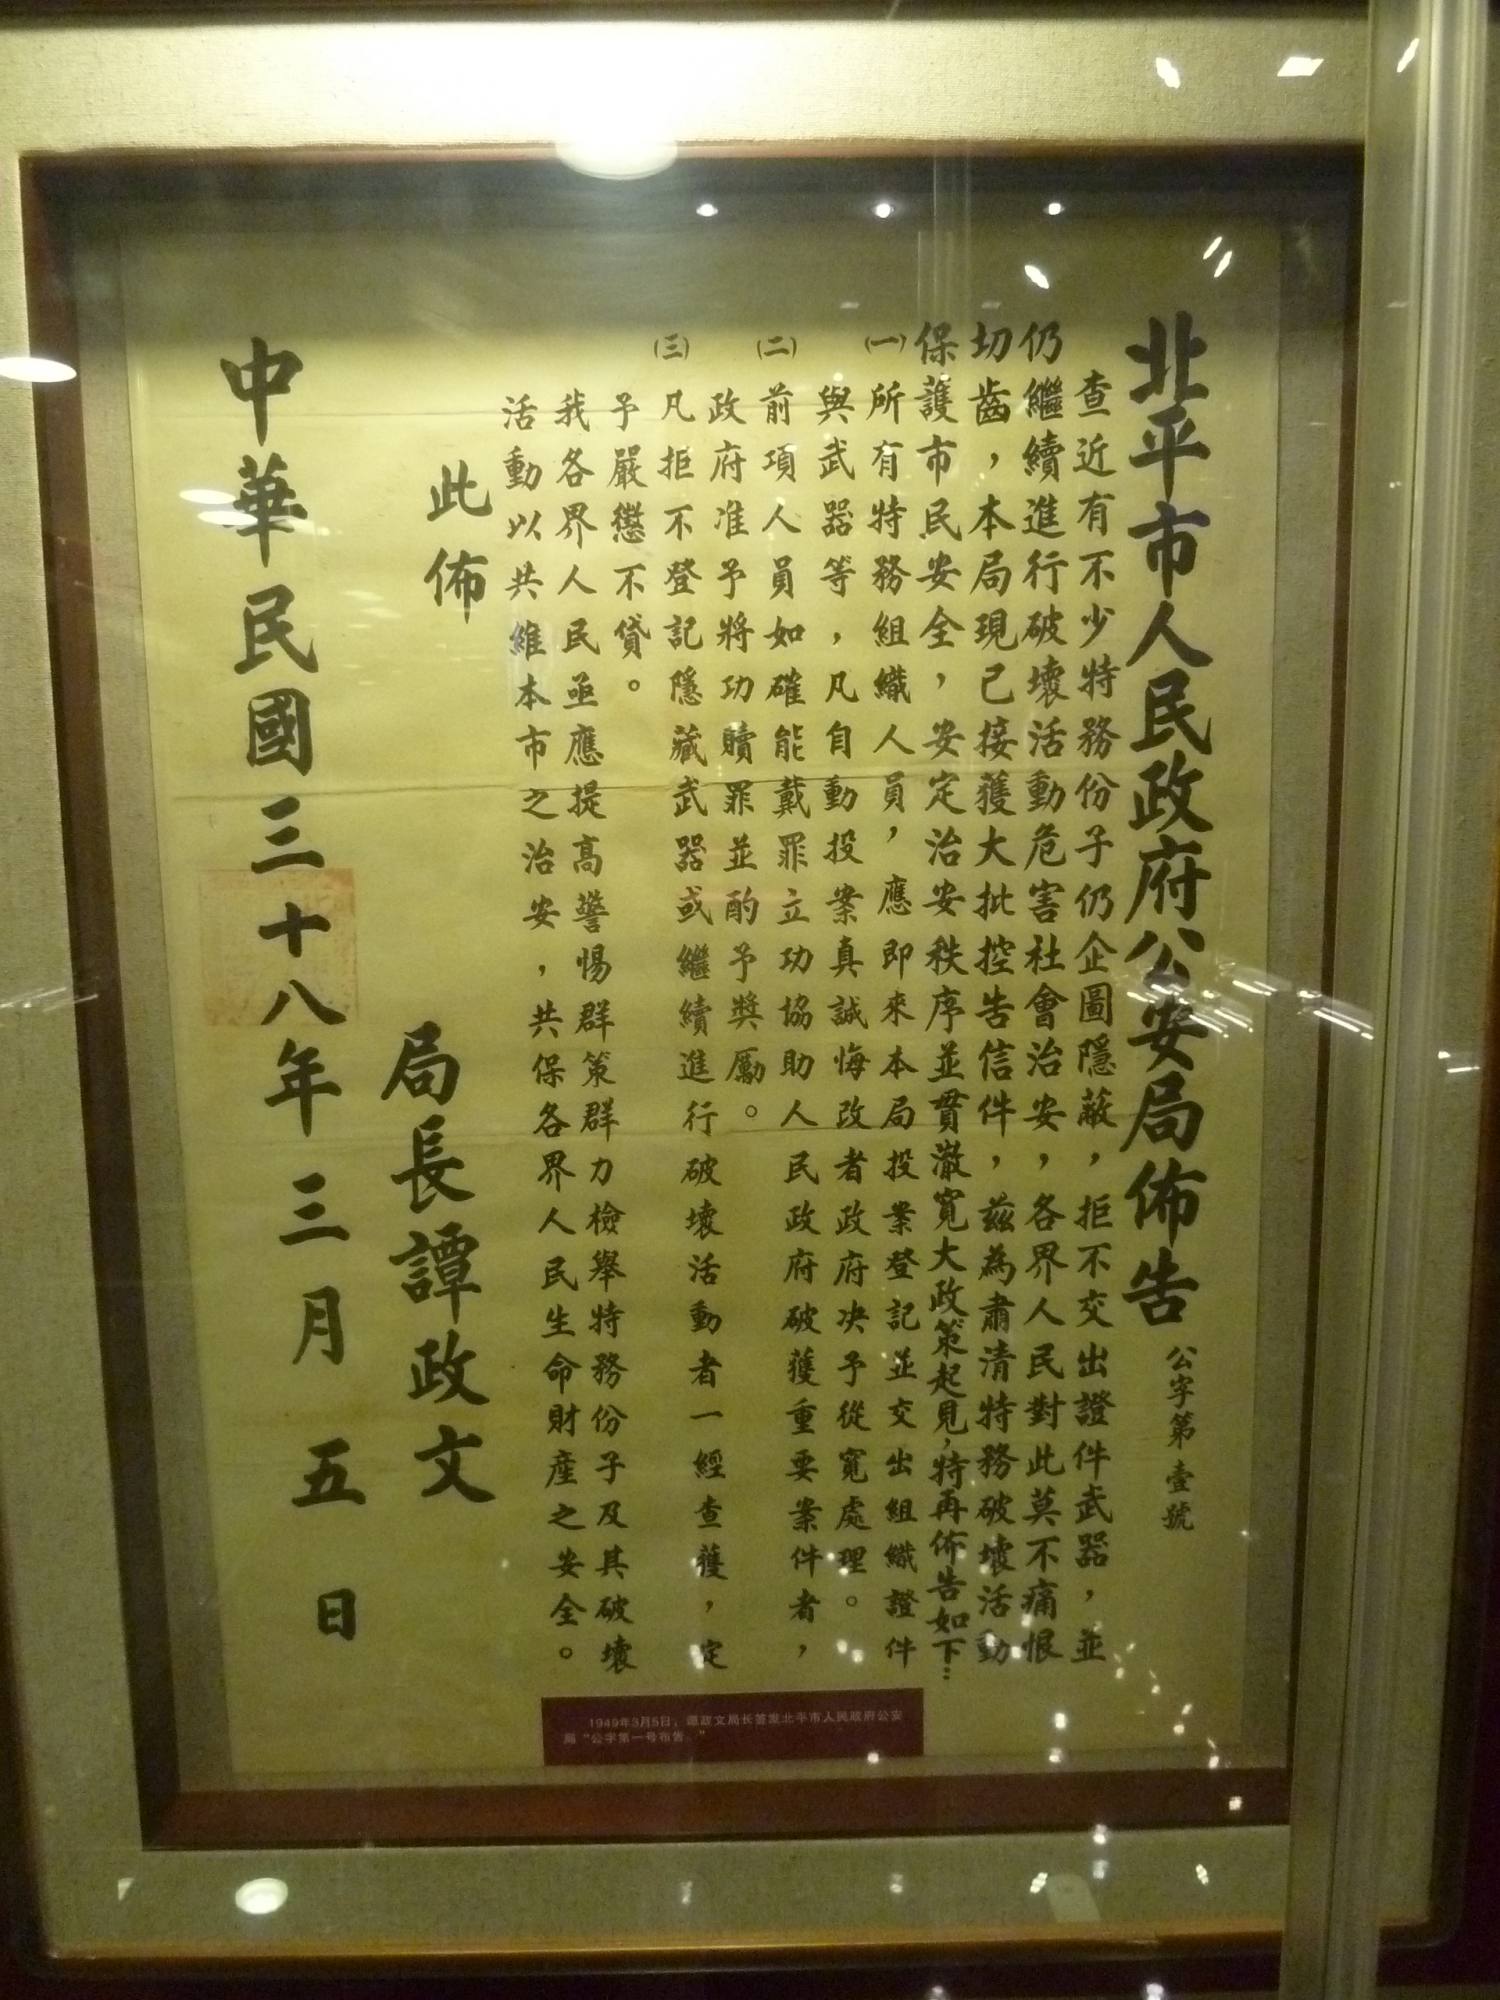 北平市人民政府公安局佈告
公字第壹號
查近有不少特務份子仍企圖隱蔽，拒不交出證件武器，並
仍繼續進行破壞活動危害社會治安，各界人民對此莫不痛恨
切齒，本局現已接獲大批控告信件，茲為肅清特務破壞活動
保護市民安全，安定治安秩序並貫澈寬大政策起見，特再佈告如下：
㈠所有特務組織人員，應即來本局投案登記並交出組織證件
與武器等，凡自動投案真誠悔改者政府决予從寬處理。
㈡前項人員如確能戴罪立功協助人民政府破獲重要案件者，
政府准予將功贖罪並酌予獎勵。
㈢凡拒不登記隱藏武器或繼續進行破壞活動者一經查獲，定
予嚴懲不貸。
我各界人民亟應提高警惕群策群力檢舉特務份子及其破壞
活動以共維本市之治安，共保各界人民生命財產之安全。
此佈
局長譚政文
中華民國三十八年三月五日
1949年3月5日，谭政文局长签发北平市人民政府公安
局“公字第一号布告。”